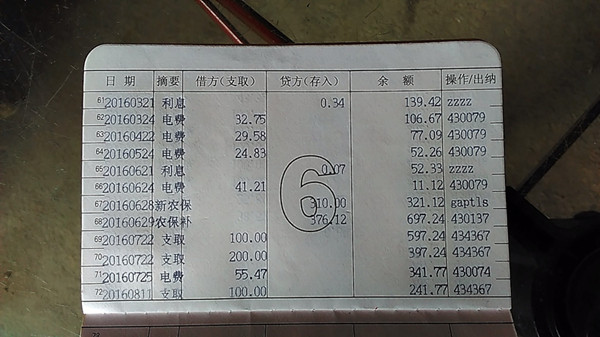 日期 摘要 借方(支取) 贷方(存入) 余额 操作/出纳
61 20160321 利息 0.34 139.42 zzzz
62 20160324 电费 32.75 106.67 430079
63 20160422 电费 29.58 77.09 430079
64 20160524 电费 24.83 52.26 430079
65 20160621 利息 0.07 52.33 zzzz
66 20160624 电费 41.21 11.12 430079
67 20160628 新农保 310.00 321.12 gaptls
68 20160629 农保补 376.12 697.24 430137
69 20160722 支取 100.00 597.24 434367
70 20160722 支取 200.00 397.24 434367
71 20160725 电费 55.47 341.77 430074
72 20160811 支取 100.00 241.77 434367
6